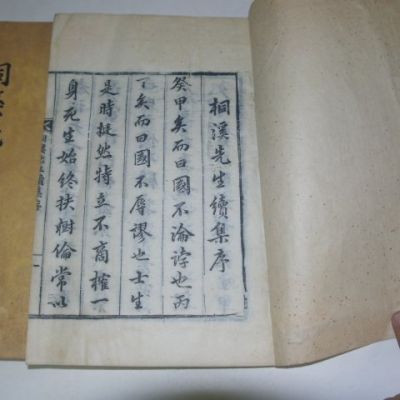 桐溪先生續集序
癸甲矣而曰國不淪誖也丙
丁矣而曰國不辱謬也士生
是時挺然特立不商搉一
身死生始終扶樹倫常以